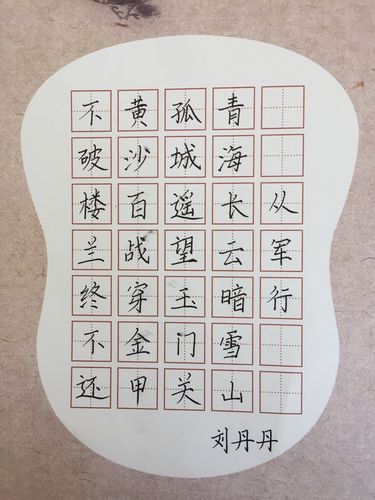 从军行
青海长云暗雪山
孤城遥望玉门关
黄沙百战穿金甲
不破楼兰终不还
刘丹丹